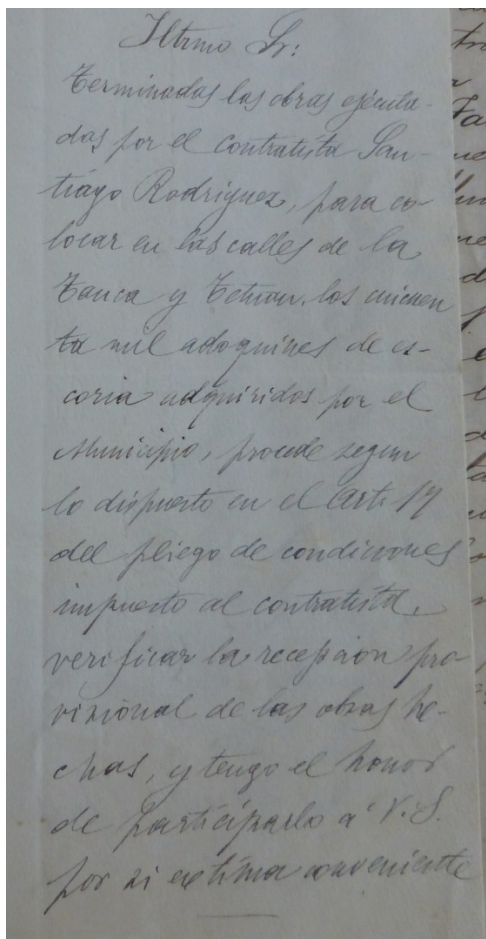 Iltrmo Sr:
Terminadas las obras ejecuta-
das por el contratista San-
tiago Rodriguez, para co-
locar en las calles de la
Zanca y Tetuan, los cincuen
ta mil adoquines de es-
coria adquiridos por el
Municipio, procede segun
lo dispuesto en el Art. 17
del pliego de condiciones
impuesto al contratista,
verificar la recepcion pro-
visional de las obras he-
chas, y tengo el honor
de participarlo a V.S.
por si extima conveniente